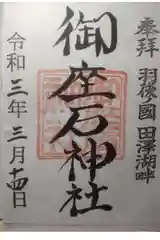 奉拝 羽後之國 田澤湖畔
御座石神社
令和三年三月十四日